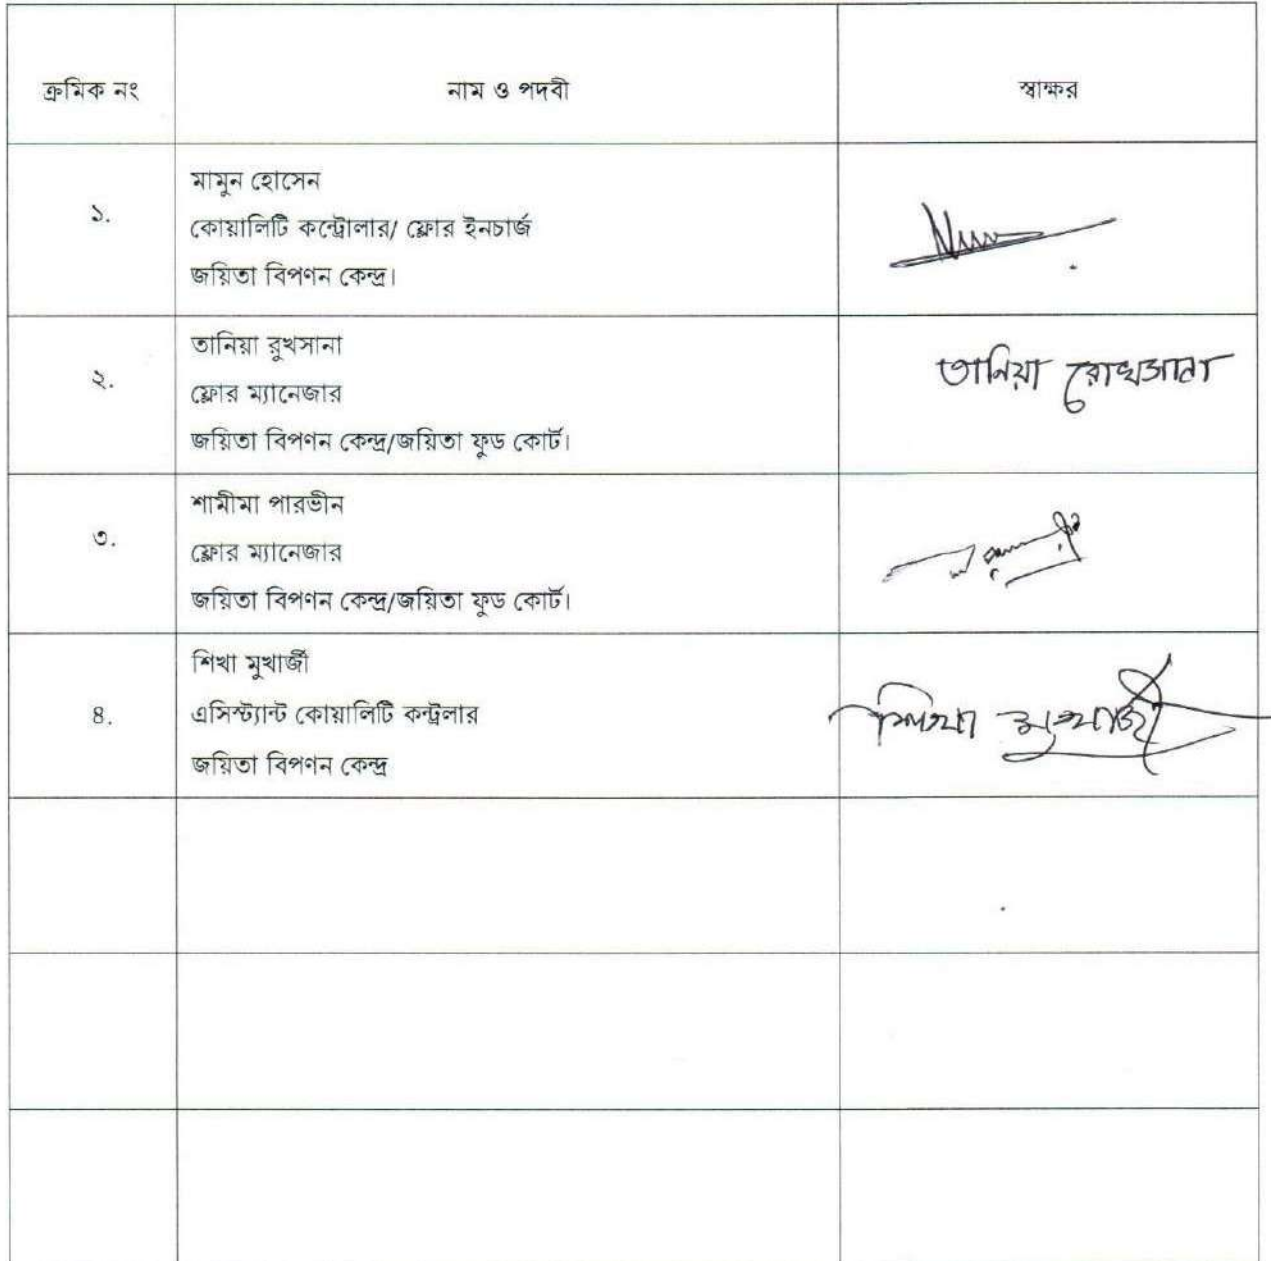 ক্রমিক নং নাম ও পদবী স্বাক্ষর
মামুন হোসেন
১.
কোয়ালিটি কন্ট্রোলার/ ফ্লোর ইনচার্জ
জয়িতা বিপণন কেন্দ্র।
তানিয়া রুখসানা
২.
ফ্লোর ম্যানেজার
জয়িতা বিপণন কেন্দ্র/জয়িতা ফুড কোর্ট।
তানিয়া রোখসানা
শামীমা পারভীন
৩.
ফ্লোর ম্যানেজার
জয়িতা বিপণন কেন্দ্র/জয়িতা ফুড কোর্ট।
শিখা মুখার্জী
৪.
এসিস্ট্যান্ট কোয়ালিটি কন্ট্রলার
জয়িতা বিপণন কেন্দ্র
শিখা মুখার্জী